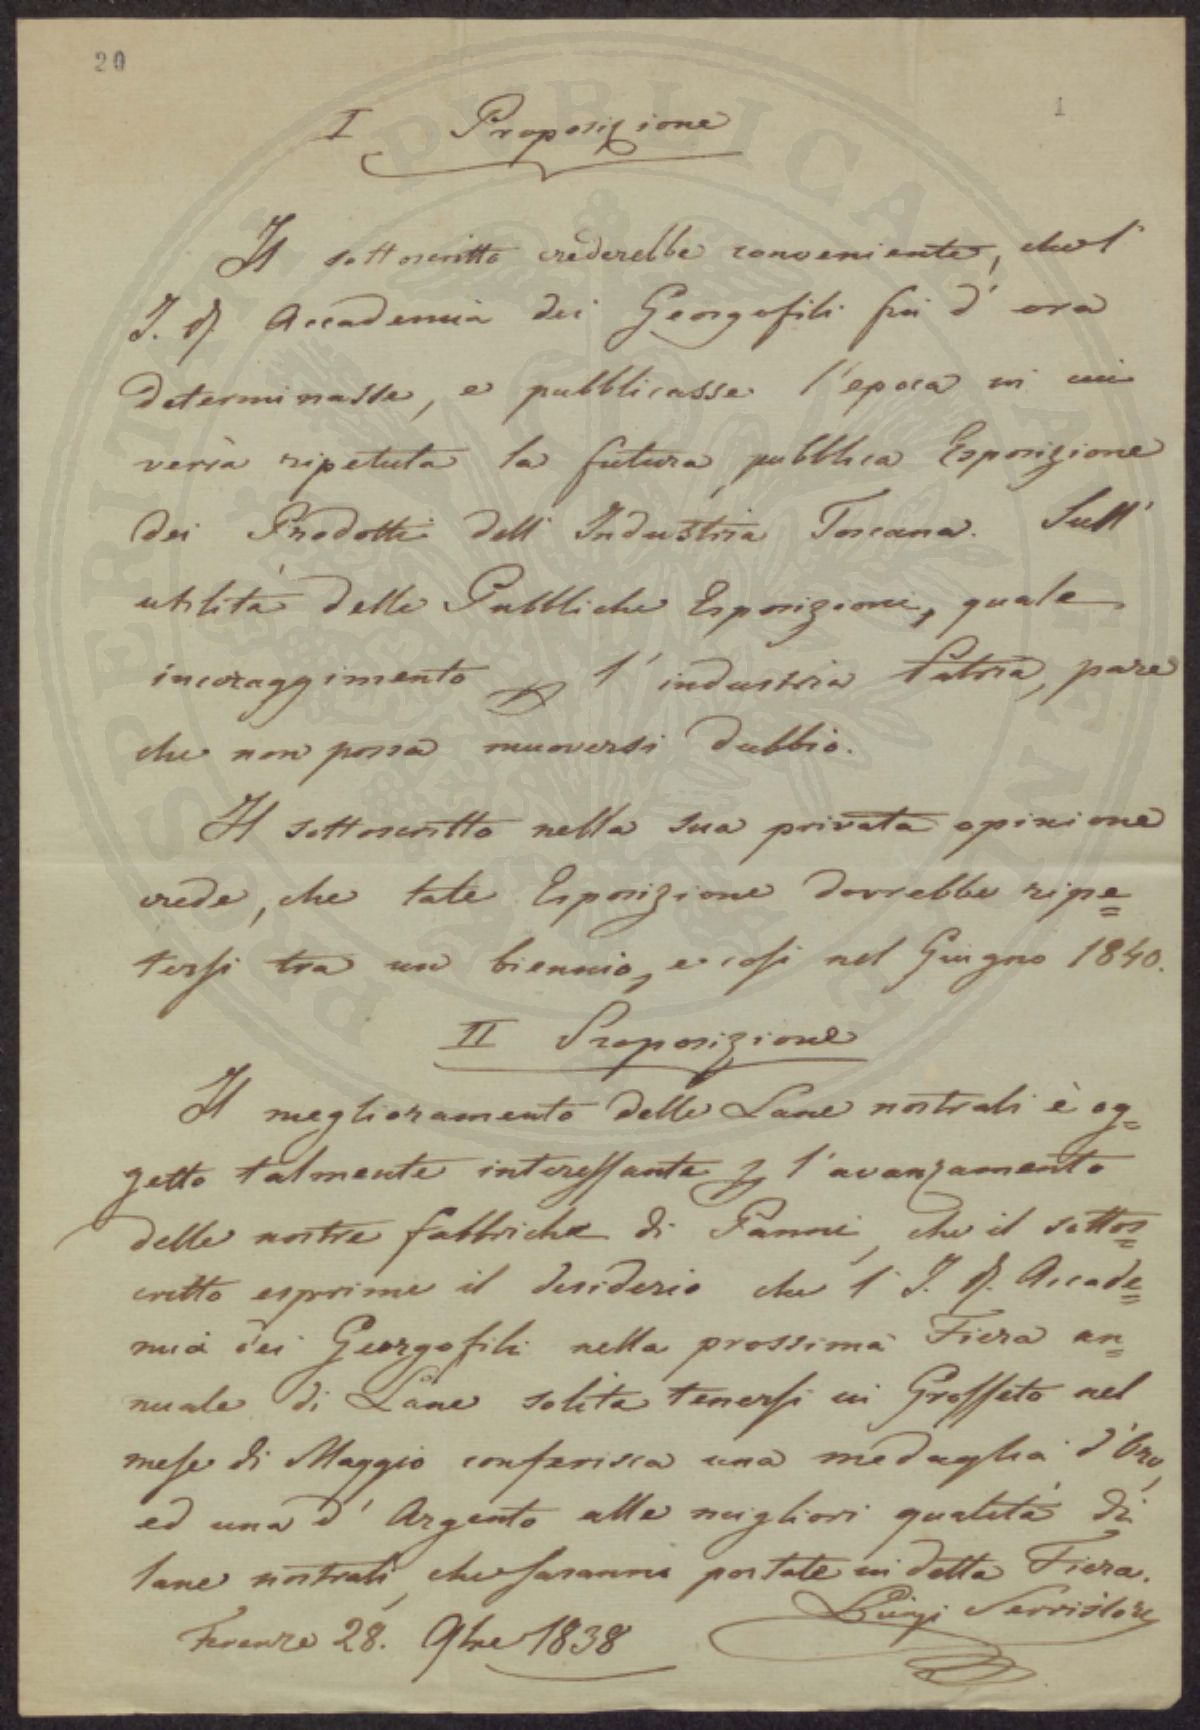 20
1
I Proposizione
Il sottoscritto crederebbe conveniente, che l'
I. R. Accademia dei Georgofili fin d'ora
determinasse, e pubblicasse l'epoca in cui
verrà ripetuta la futura pubblica Esposizione
dei Prodotti dell'Industria Toscana. Sull'
utilità delle Pubbliche Esposizioni, quale
incoraggimento l'industria Patria, pare
che non possa muoversi dubbio.
Il sottoscritto nella sua privata opinione
crede, che tale Esposizione dovrebbe ripe=
tersi tra un biennio, e così nel Giugno 1840.
II Proposizione
Il miglioramento delle Lane nostrali è og=
getto talmente interessante l'avanzamento
delle nostre fabbriche di Panni, che il sottos=
critto esprime il desiderio che l'I. R. Accade=
mia dei Georgofili nella prossima Fiera an=
nuale di Lane solita tenersi in Grosseto nel
mese di Maggio conferisca una medaglia d'Oro,
ed una d'Argento alle migliori qualità di
lane nostrali, che saranno portate in detta Fiera.
Luigi Serristori
Firenze 28. 9bre 1838
PROSPERITATI PUBLICAE AUGENDAE